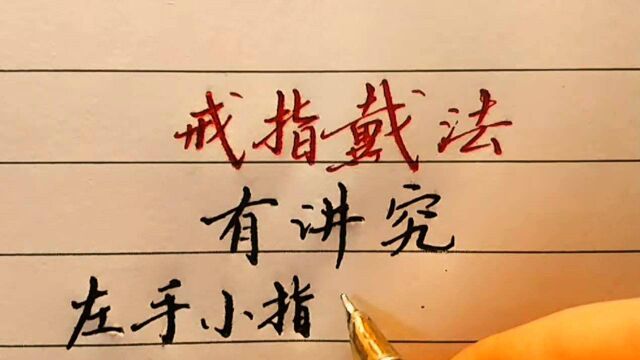 戒指戴法
有讲究
左手小指